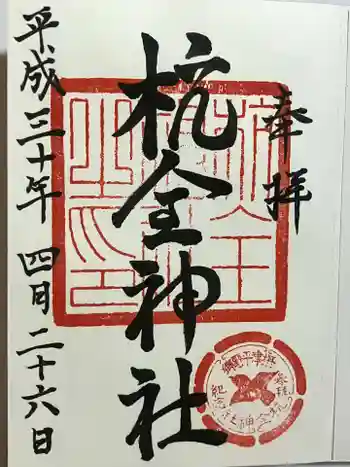 奉拝
杭全神社
平成三十年 四月二十六日